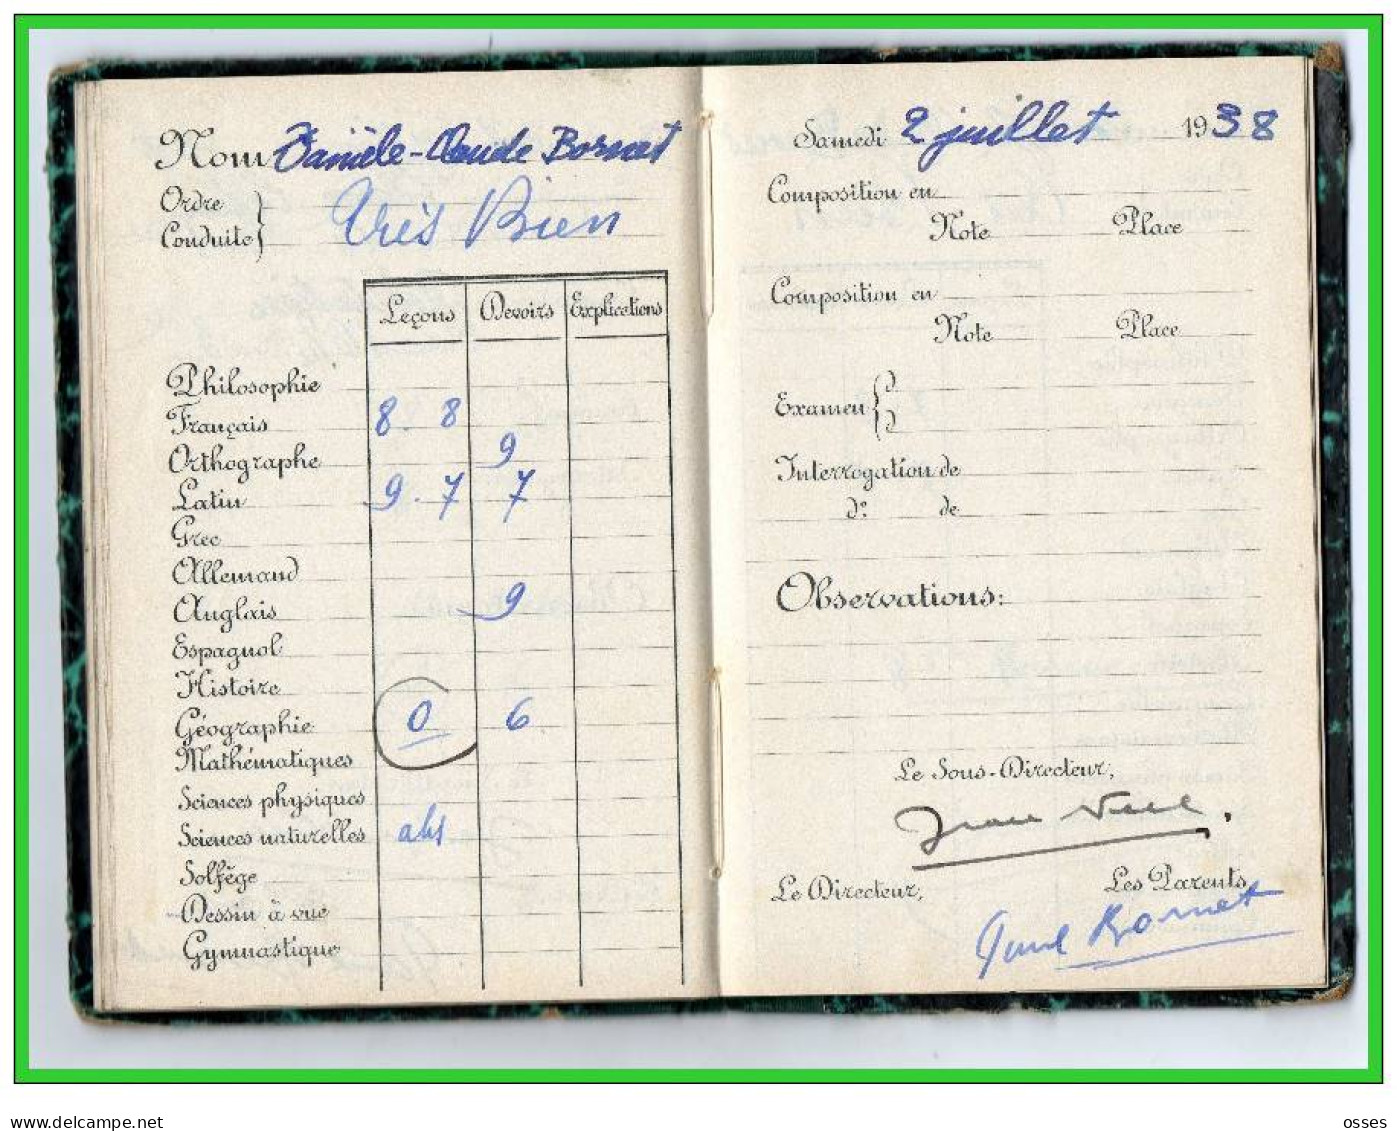 Nom Danièle-Claude Bornet
Ordre
Conduite
Très Bien
Leçons Devoirs Explications
Philosophie
Français 8. 8
Orthographe 9
Latin 9. 7 7
Grec
Allemand
Anglais 9
Espagnol
Histoire
Géographie 0 6
Mathématiques
Sciences physiques
Sciences naturelles abs
Solfège
Dessin à vue
Gymnastique
Samedi 2 juillet 1938
Composition en
Note Place
Composition en
Note Place
Examen
Interrogation de
d° de
Observations:
Le Sous-Directeur,
Jean
Le Directeur, Les Parents,
Paul Bornet
www.delcampe.net
osses